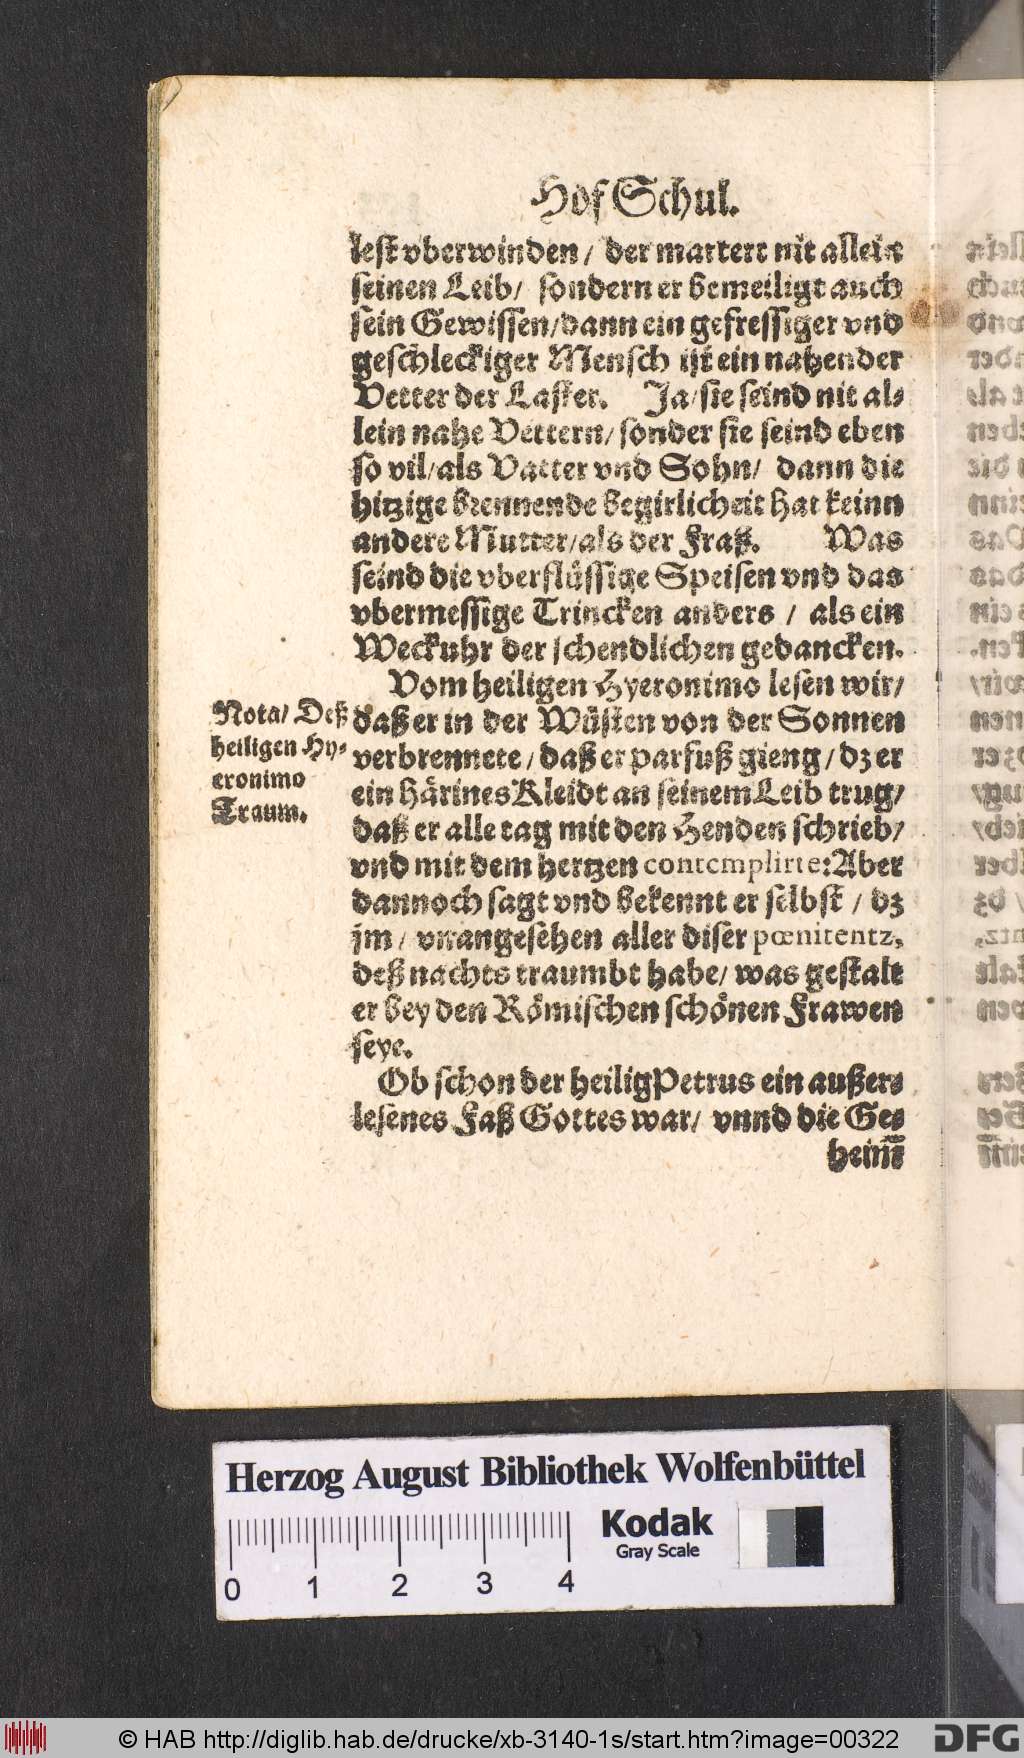 Hof Schul.
lest vberwinden / der martert nit allein
seinen Leib / sondern er bemeiligt auch
sein Gewissen / dann ein gefressiger vnd
geschleckiger Mensch ist ein nahender
Vetter der Laster. Ja / sie seind nit al-
lein nahe Vettern / sonder sie seind eben
so vil / als Vatter vnd Sohn / dann die
hitzige brennende begirlicheit hat keinn
andere Mutter / als der Fraß. Was
seind die vberflüssige Speisen vnd das
vbermessige Trincken anders / als ein
Weckuhr der schendlichen gedancken.
Vom heiligen Hyeronimo lesen wir /
Nota / Deß
heiligen Hy-
eronimo
Traum.
daß er in der Wüsten von der Sonnen
verbrennete / daß er parfuß gieng / dz er
ein härines Kleidt an seinem Leib trug /
daß er alle tag mit den Henden schrieb /
vnd mit dem hertzen contemplirte: Aber
dannoch sagt vnd bekennt er selbst / dz
jm / vnangesehen aller diser pœnitentz,
deß nachts traumbt habe / was gestalt
er bey den Römischen schönen Frawen
seye.
Ob schon der heilig Petrus ein außer-
lesenes Faß Gottes war / vnnd die Ge-
heim̃
Herzog August Bibliothek Wolfenbüttel
Kodak
Gray Scale
0 1 2 3 4
© HAB http://diglib.hab.de/drucke/xb-3140-1s/start.htm?image=00322
DFG